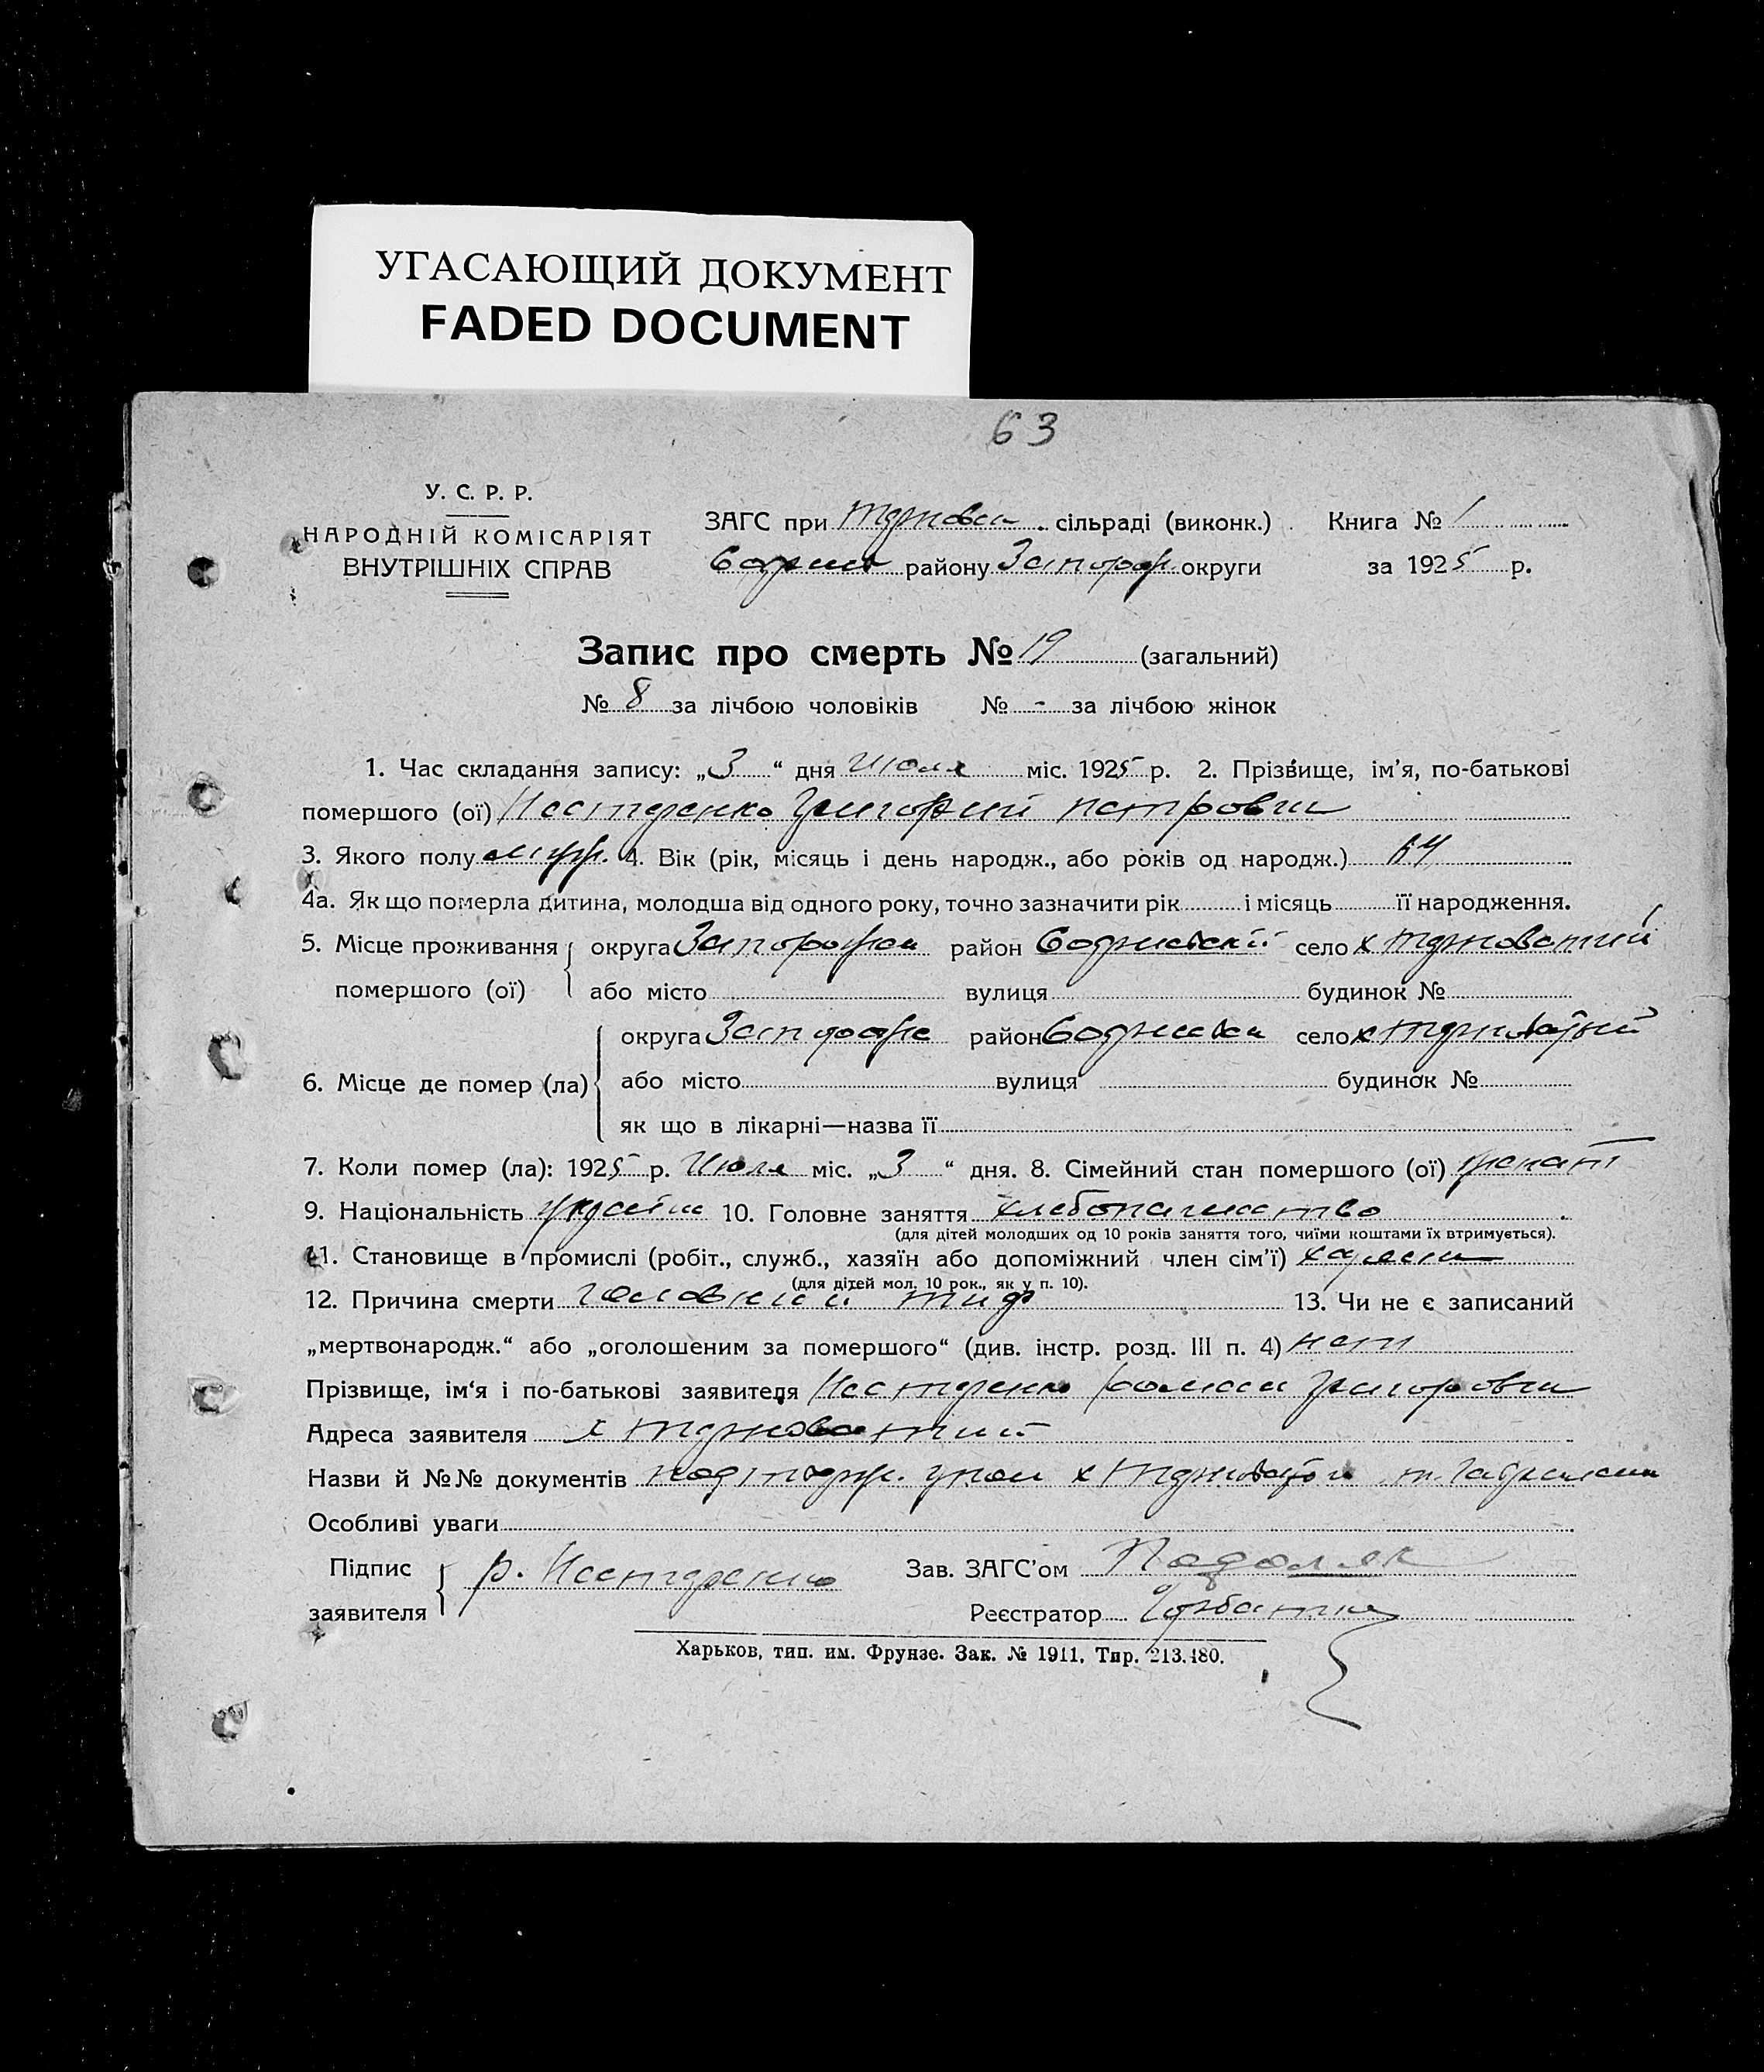 УГАСАЮЩИЙ ДОКУМЕНТ
FADED DOCUMENT
63
У. С. Р. Р.
НАРОДНІЙ КОМІСАРІЯТ
ВНУТРІШНІХ СПРАВ
ЗАГС при сільраді (виконк.) Книга № 1
району Запорож округи за 1925 р.
Запис про смерть № 19 (загальний)
№ 8 за лічбою чоловіків № - за лічбою жінок
1. Час складання запису: „3“ дня Июля міс. 1925 р. 2. Прізвище, ім'я, по-батькові
помершого (ої) Нестеренко Григорий Петрович
3. Якого полу муж. 4. Вік (рік, місяць і день народж., або років од народж.)
4а. Як що померла дитина, молодша від одного року, точно зазначити рік і місяць її народження.
5. Місце проживання округа район село х Терноватий
помершого (ої) або місто вулиця будинок №
округа район село х
6. Місце де помер (ла) або місто вулиця будинок №
як що в лікарні—назва її
7. Коли помер (ла): 1925 р. Июля міс. „3“ дня. 8. Сімейний стан помершого (ої) женат
9. Національність 10. Головне заняття хлебопашество
(для дітей молодших од 10 років заняття того, чиїми коштами їх втримується).
11. Становище в промислі (робіт., служб., хазяїн або допоміжний член сім'ї)
(для дітей мол. 10 рок., як у п. 10).
12. Причина смерти головний тиф 13. Чи не є записаний
„мертвонародж.“ або „оголошеним за помершого“ (див. інстр. розд. III п. 4) нет
Прізвище, ім'я і по-батькові заявителя Нестеренко Григорович
Адреса заявителя х Терноватий
Назви й №№ документів
Особливі уваги
Підпис Р. Нестеренко Зав. ЗАГС'ом Подоляк
заявителя Реєстратор
Харьков, тип. им. Фрунзе. Зак. № 1911. Тир. 213.480.